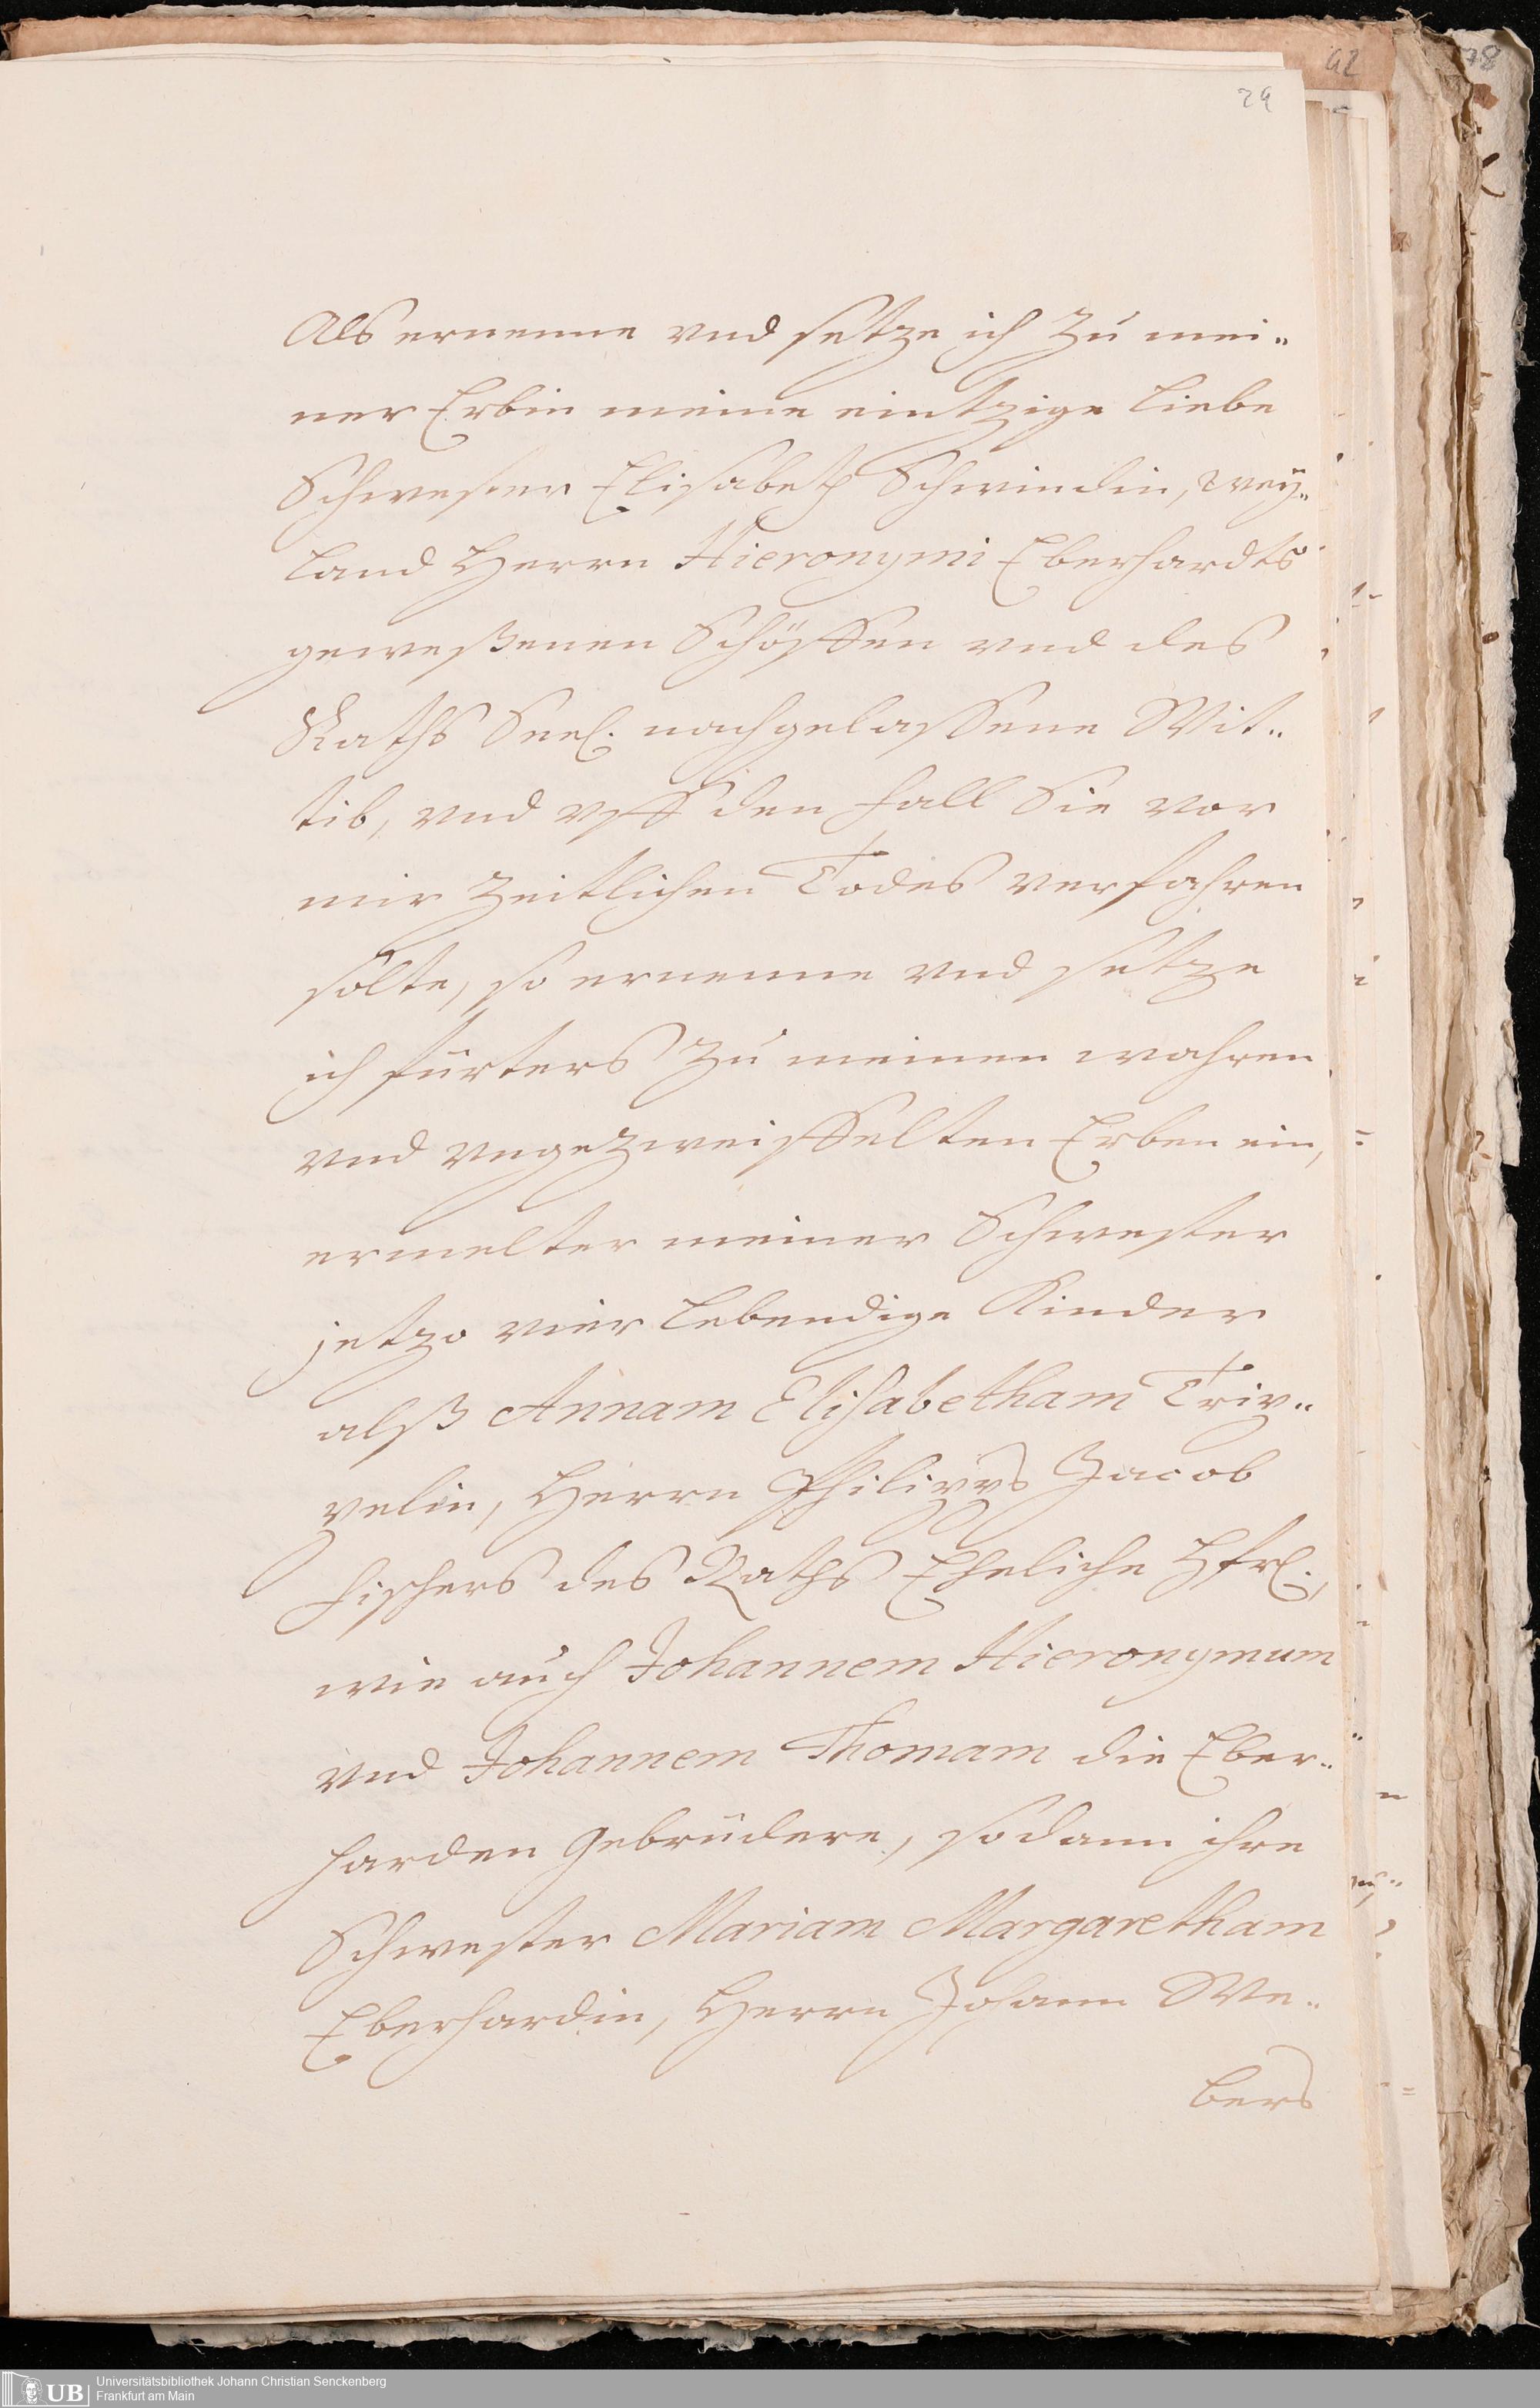 78
42
29
Als ernenne vnd setze ich zu mei„
ner Erbin meine eintzige liebe
Schwester Elisabeth Schwindin, wey„
land Herrn Hieronymi Eberhardts
geweßenen Schöffen vnd des
Raths Seel. nachgelassene Wit„
tib, vnd vff den fall Sie vor
mir zeitlichen Todes verfahren
solte, so ernenne vnd setze
ich fürters zu meinen wahren
vnd vngezweiffelten Erben ein,
ermelter meiner Schwester
jetzo vier lebendige Kinder
alß Annam Elisabetham Trip„
pelin, Herrn Philipps Jacob
Fischers des Raths Eheliche Hfrl.,
wie auch Johannem Hieronymum
vnd Johannem Thomam die Eber„
harden Gebrüdere, sodann ihre
Schwester Mariam Margaretham
Eberhardin, Herrn Johann We„
bers
UB
Universitätsbibliothek Johann Christian Senckenberg
Frankfurt am Main